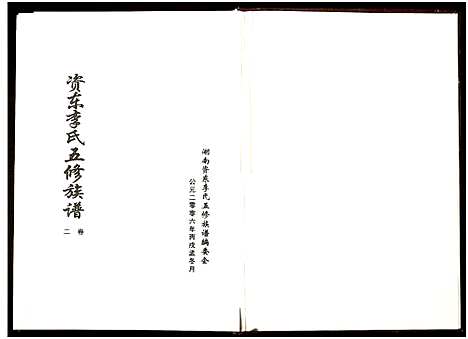 资东李氏五修族谱
卷二
湖南资东李氏五修族谱编委会
公元二零零六年丙戌孟冬月